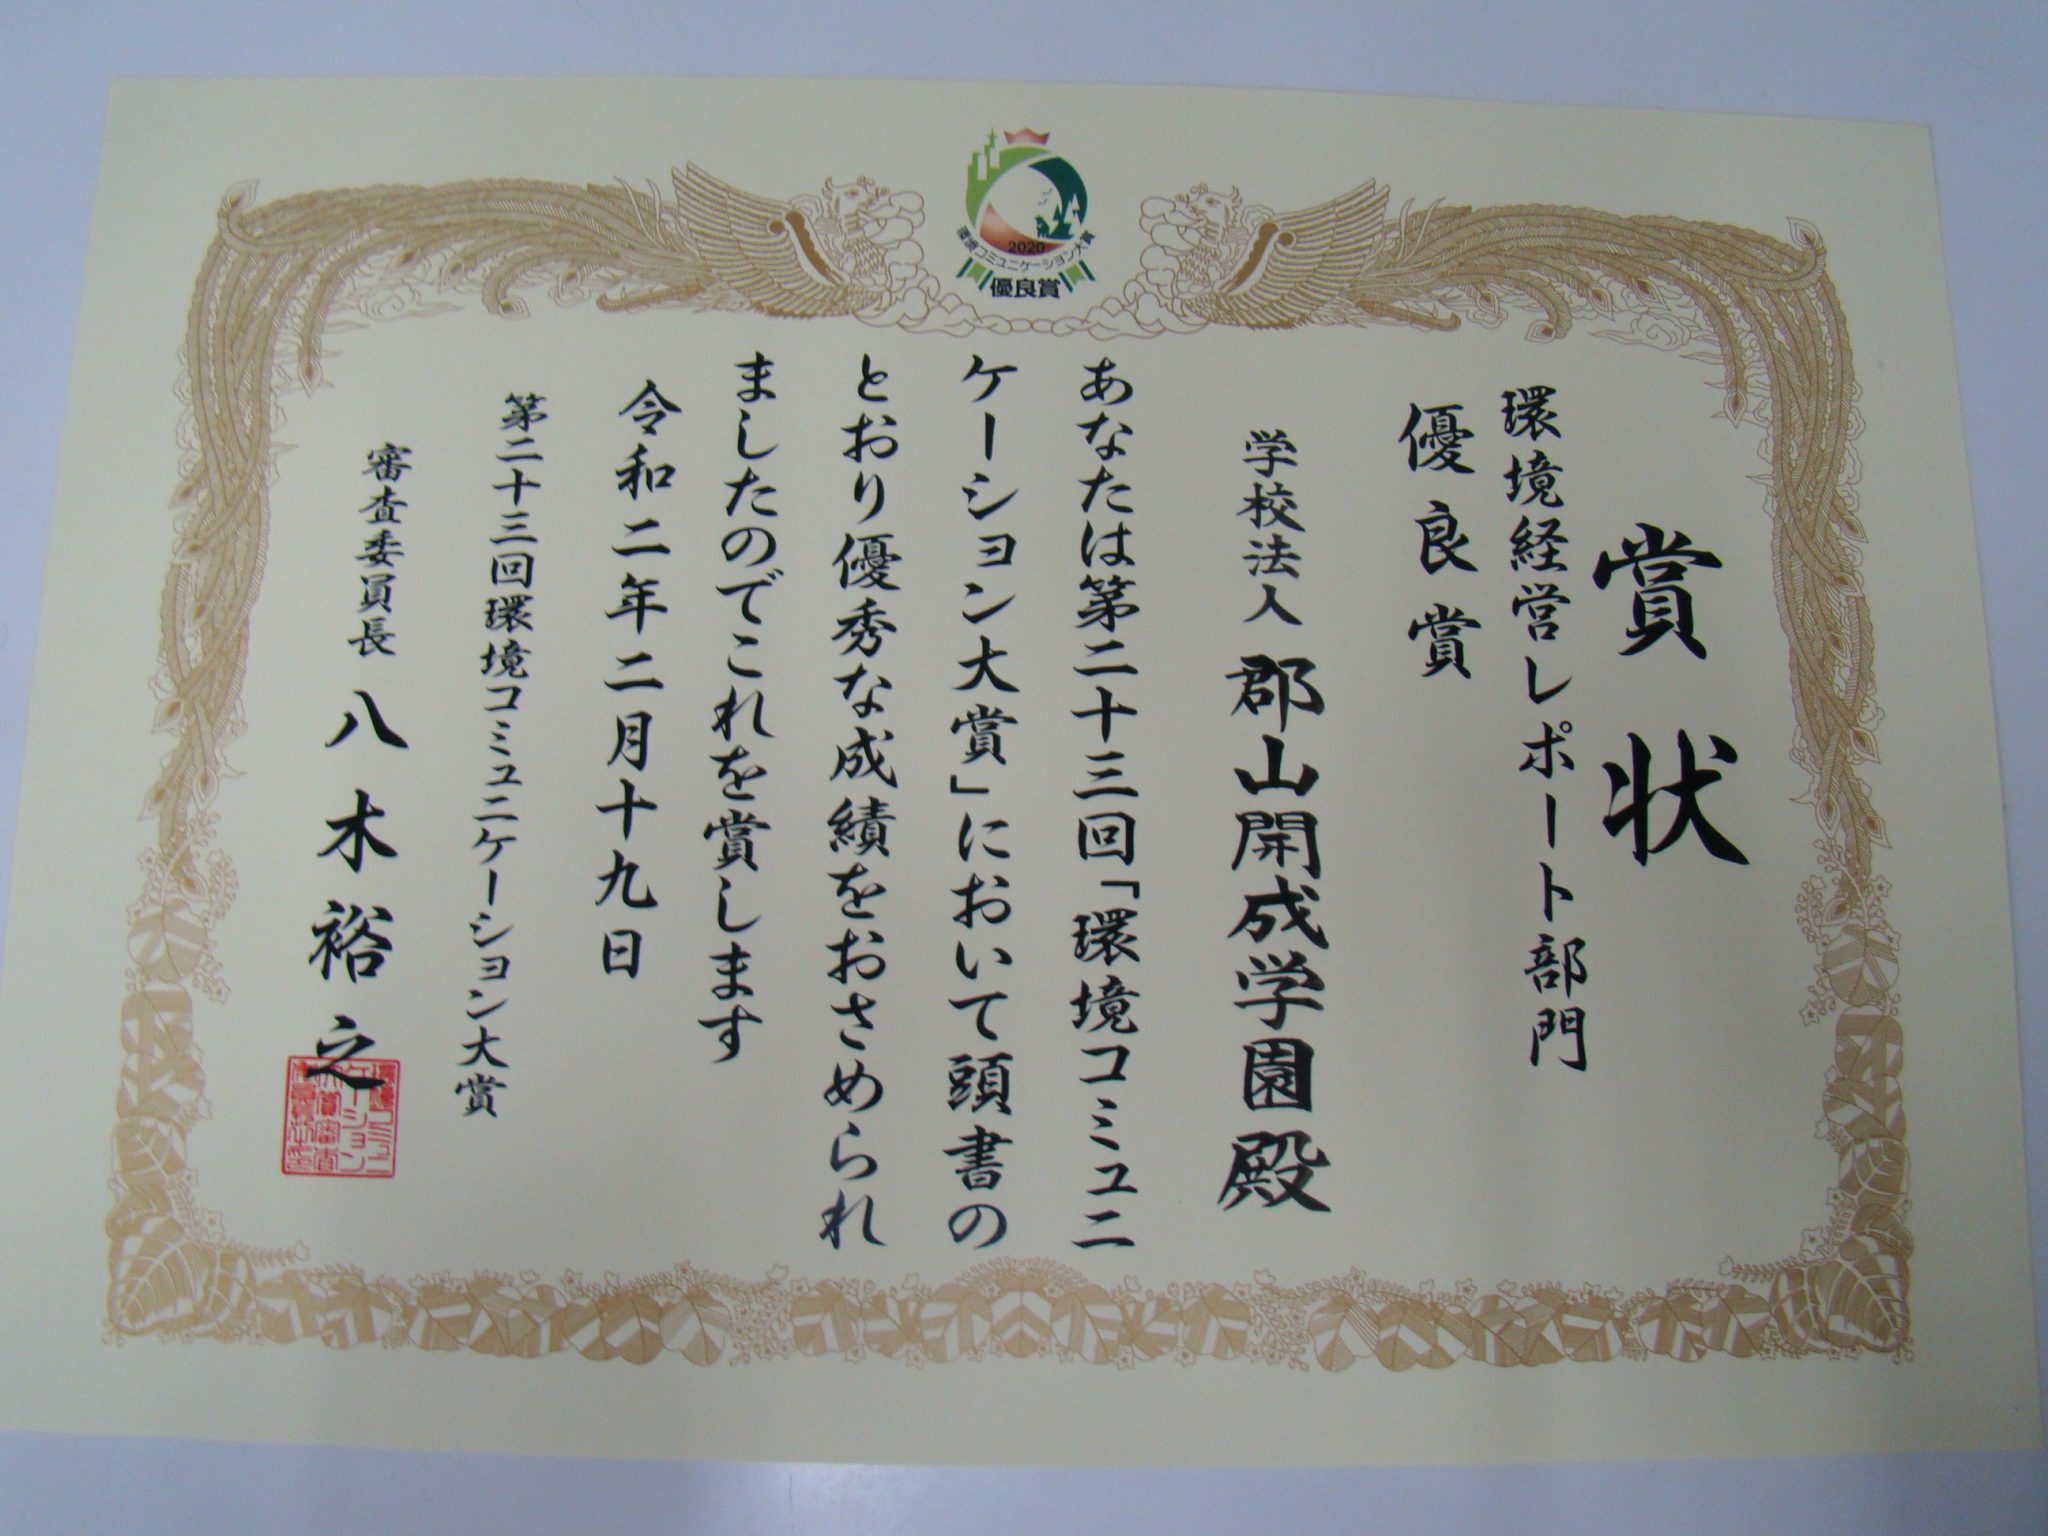 2020
環境コミュニケーション大賞
優良賞
賞状
環境経営レポート部門
優良賞
学校法人 郡山開成学園 殿
あなたは第二十三回「環境コミュニ
ケーション大賞」において頭書の
とおり優秀な成績をおさめられ
ましたのでこれを賞します
令和二年二月十九日
第二十三回環境コミュニケーション大賞
審査委員長 八木裕之